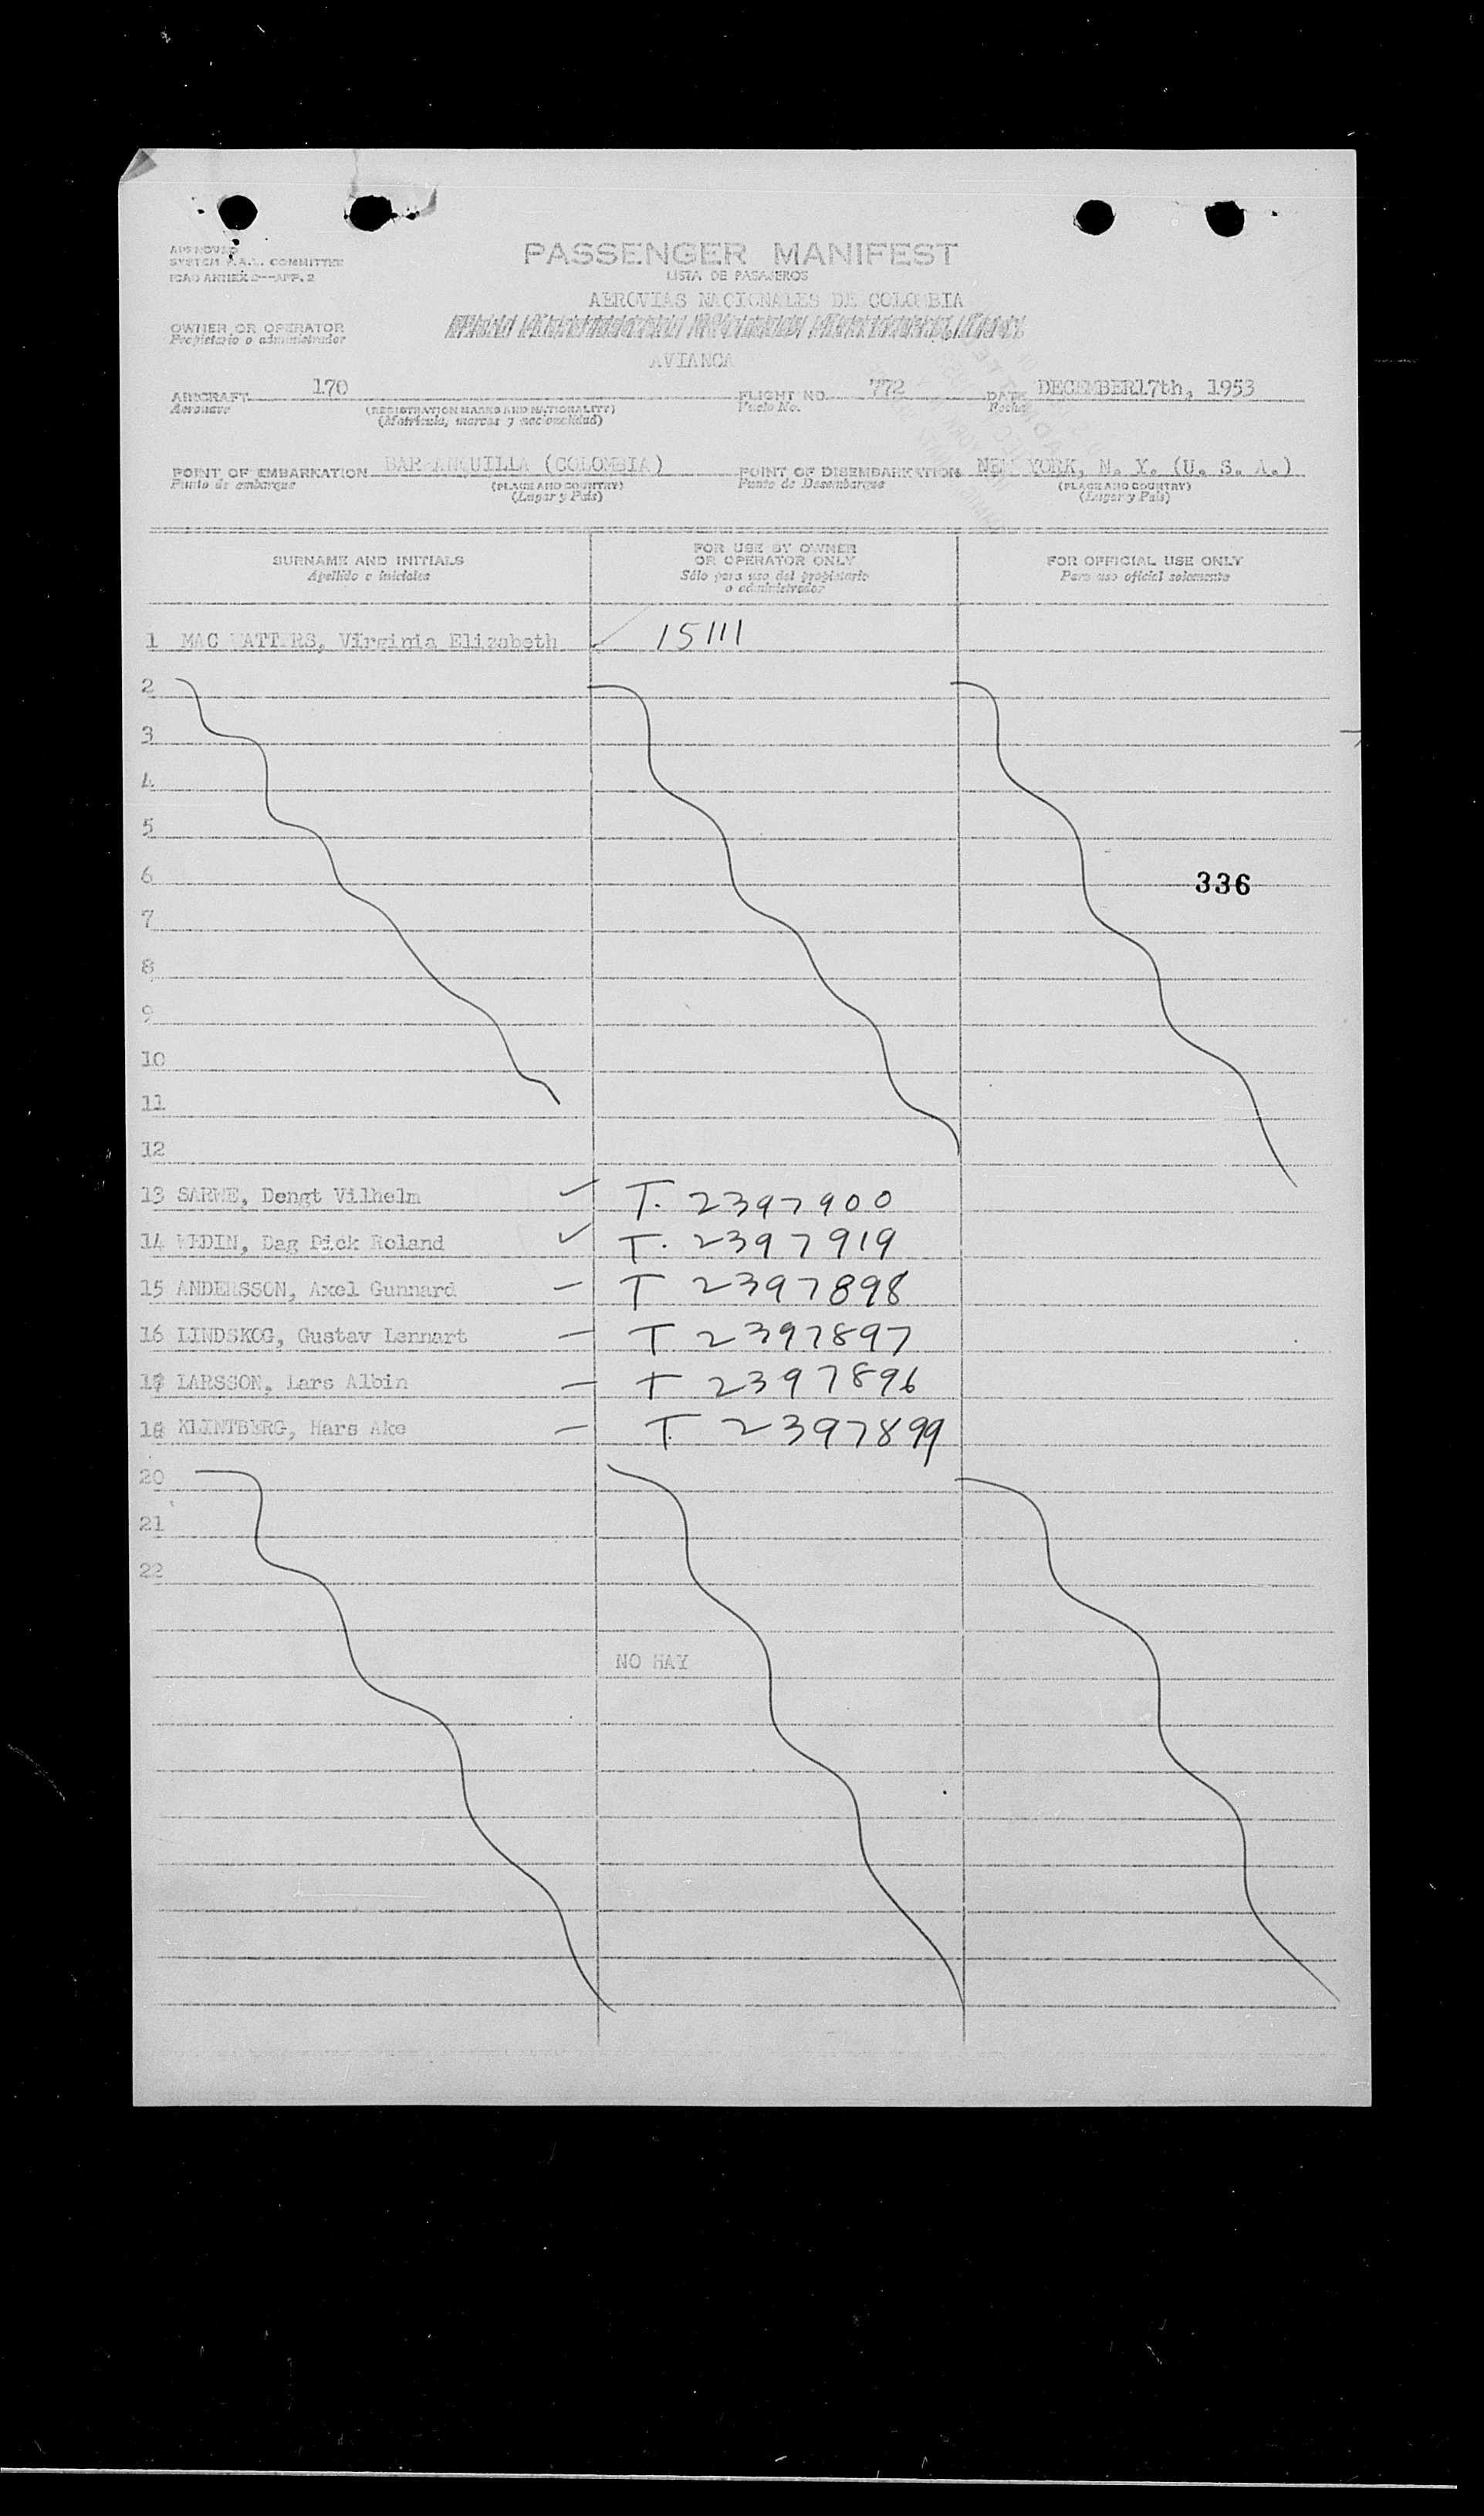 APPROVED
SYSTEM F.A.L. COMMITTEE
ICAO ANNEX 9—APP. 2
PASSENGER MANIFEST
LISTA DE PASAJEROS
AEROVIAS NACIONALES DE COLOMBIA
OWNER OR OPERATOR
Propietario o administrador
AVIANCA
AIRCRAFT 170 FLIGHT NO. 772 DATE DECEMBER17th, 1953
Aeronave (REGISTRATION MARKS AND NATIONALITY) Vuelo No. Fecha
(Matrícula, marcas y nacionalidad)
POINT OF EMBARKATION BARRANQUILLA (COLOMBIA) POINT OF DISEMBARKATION NEW YORK, N. Y. (U. S. A.)
Punto de embarque (PLACE AND COUNTRY) Punto de Desembarque (PLACE AND COUNTRY)
(Lugar y País) (Lugar y País)
SURNAME AND INITIALS
Apellido e iniciales
FOR USE BY OWNER
OR OPERATOR ONLY
Sólo para uso del propietario
o administrador
FOR OFFICIAL USE ONLY
Para uso oficial solamente
1 MAC WATTERS, Virginia Elizabeth 15111
2
3
4
5
6 336
7
8
9
10
11
12
13 SARWE, Dengt Vilhelm T. 2397900
14 WEDIN, Dag Dick Roland T. 2397919
15 ANDERSSON, Axel Gunnard T 2397898
16 LINDSKOG, Gustav Lennart T 2397897
17 LARSSON, Lars Albin T 2397896
18 KLINTBERG, Hars Ake T. 2397899
20
21
22
NO HAY